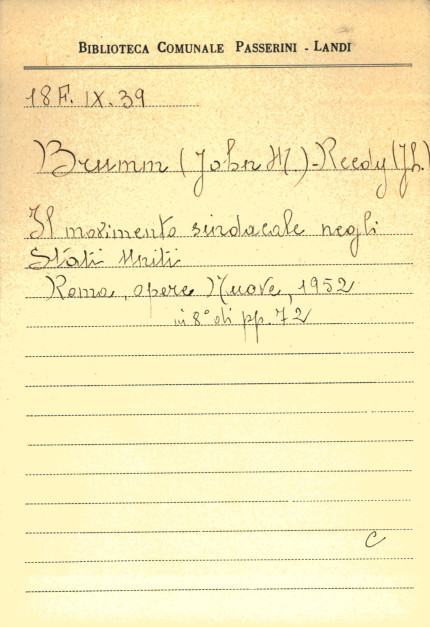 BIBLIOTECA COMUNALE PASSERINI - LANDI
18 F. IX. 39
Brumm (John M.) - Reedy (Jh.)
Il movimento sindacale negli
Stati Uniti
Roma, opere Nuove, 1952
in 8° di pp. 72
C